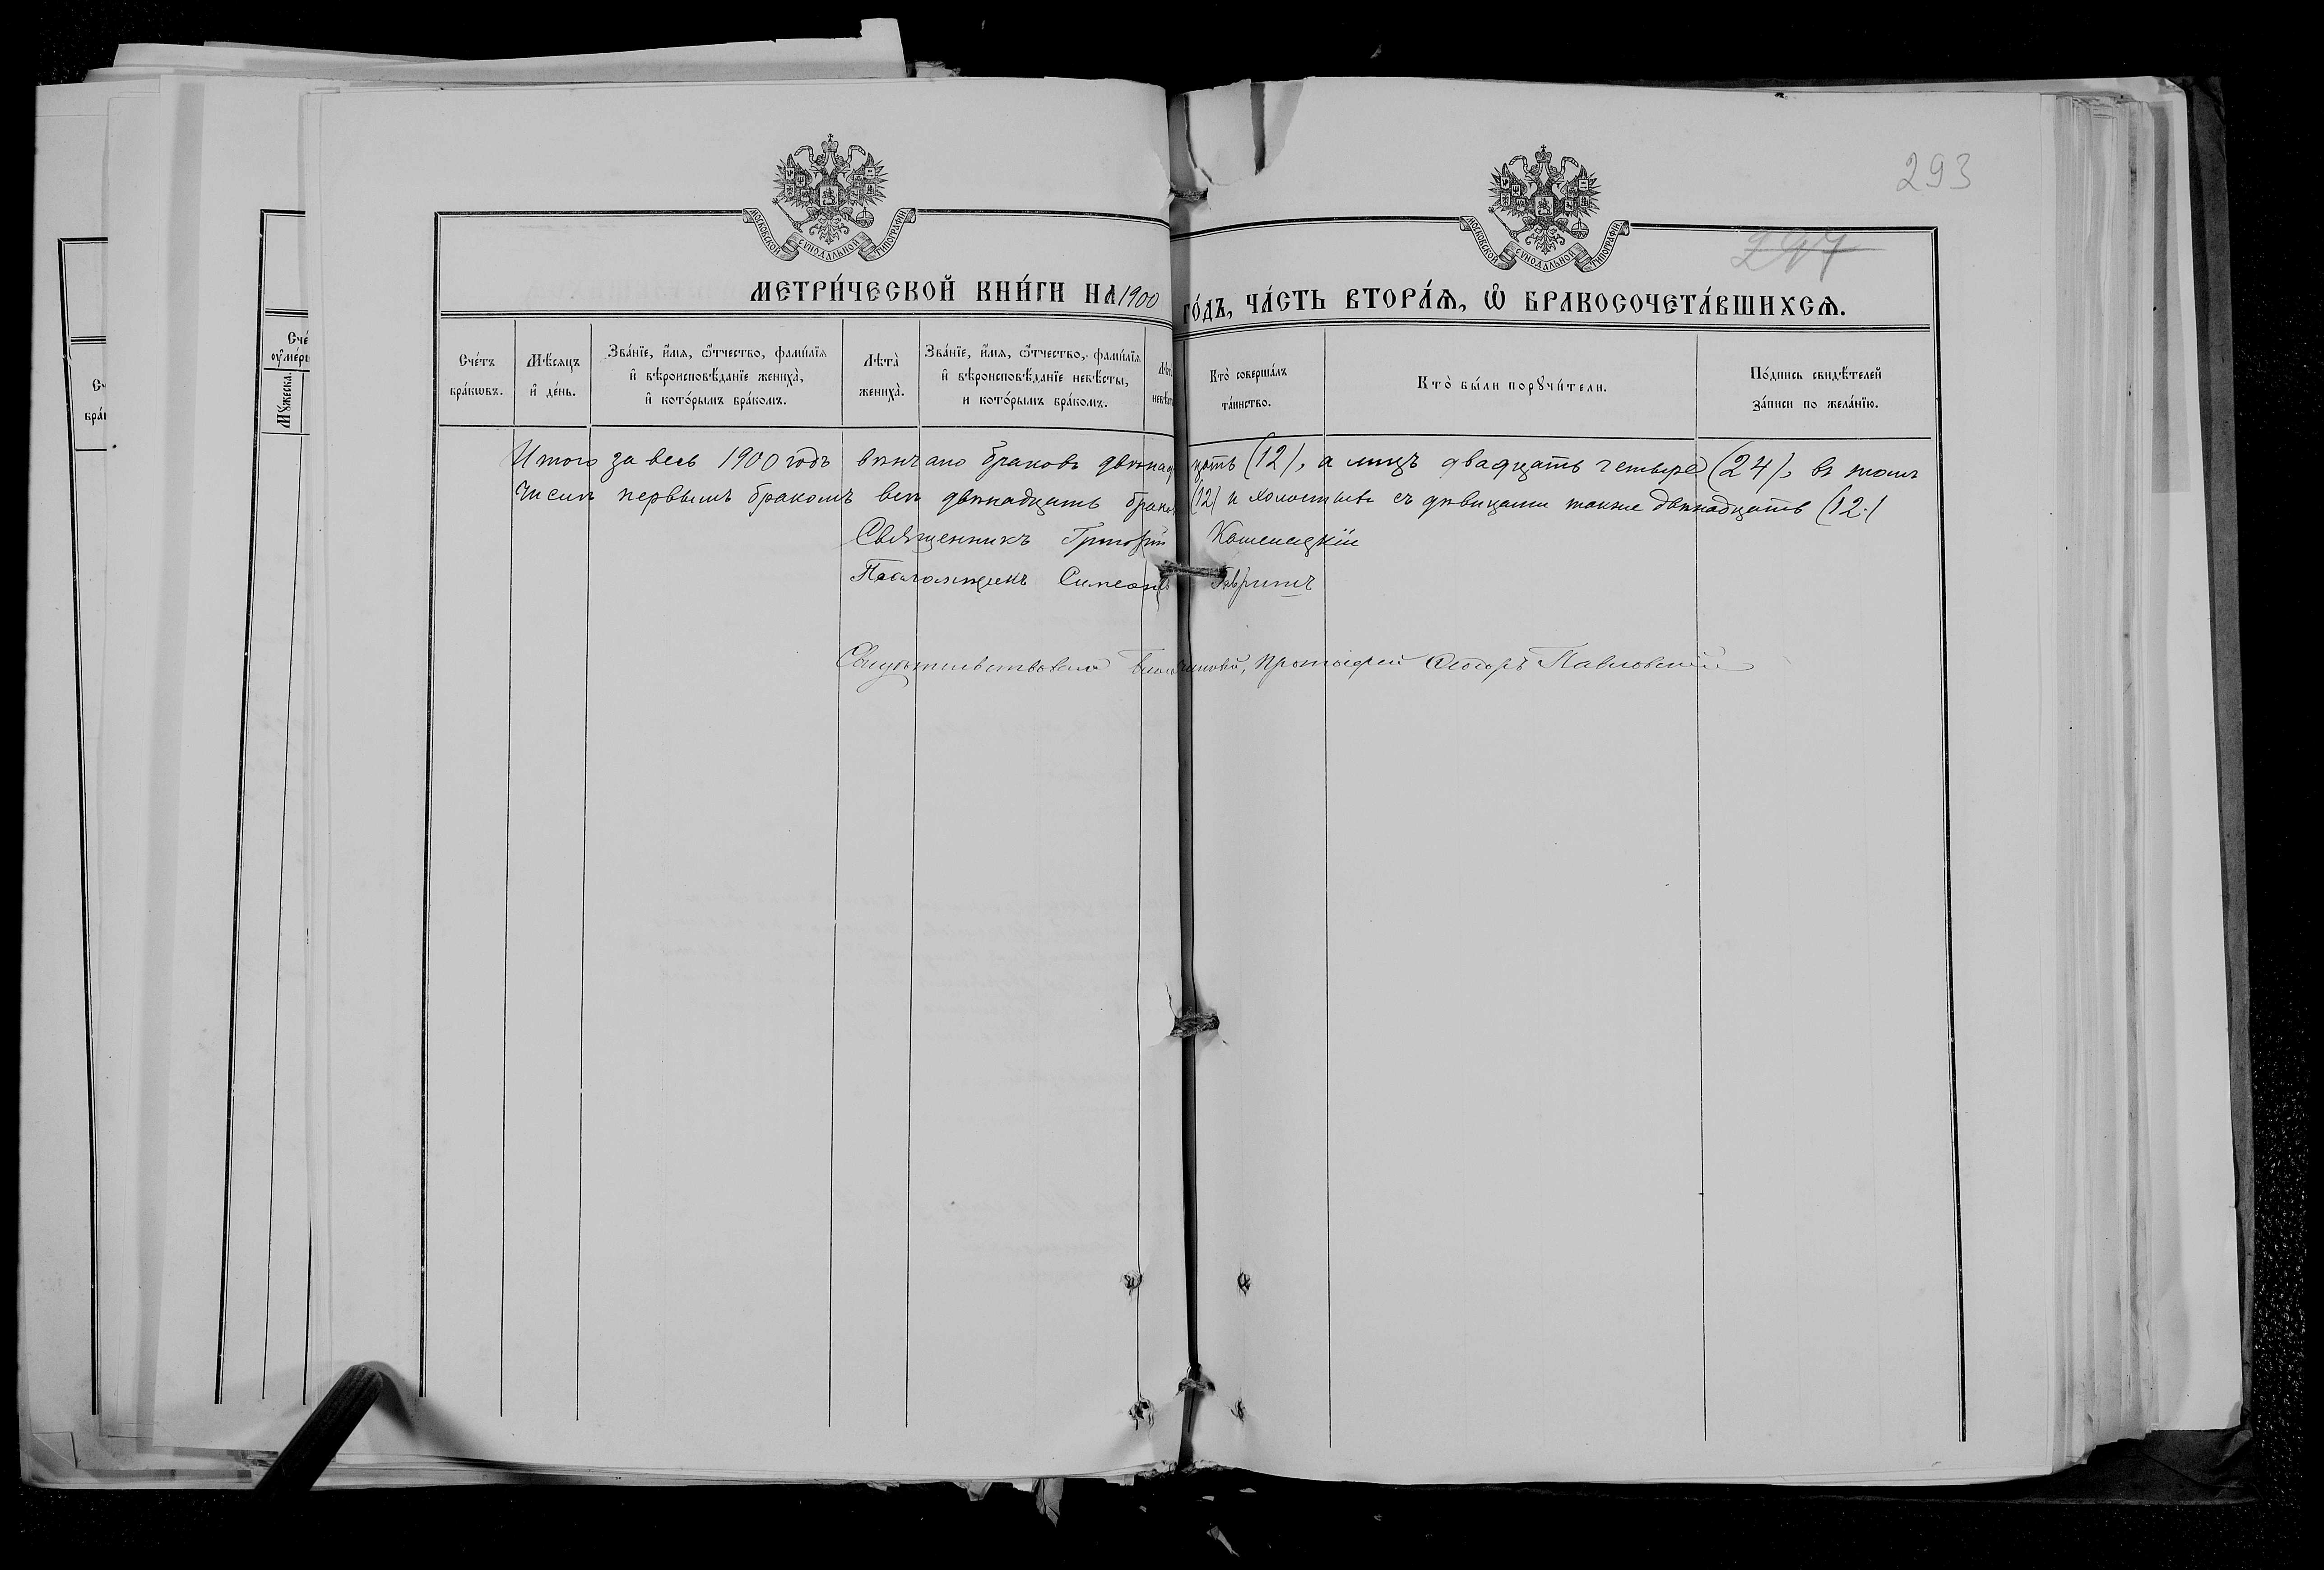 293
297
МОСКОВСКОЙ СѴНОДАЛЬНОЙ ТИПОГРАФІИ
МОСКОВСКОЙ СѴНОДАЛЬНОЙ ТИПОГРАФІИ
МЕТРИ́ЧЕСКОЙ КНИ́ГИ НА 1900 ГО́ДЪ, ЧА́СТЬ ВТОРА́Ѧ, Ѽ БРАКОСОЧЕТА́ВШИХСѦ.
Сче́тъ бра́кѡвъ.
Мѣ́сяцъ и҆ де́нь.
Зва́нїе, и҆́мя, ѻ҆́тчество, фамі́лїя и҆ вѣроисповѣ́данїе жениха̀, и҆ кото́рымъ бра́комъ.
Лѣта̀ жениха̀.
Зва́нїе, и҆́мя, ѻ҆́тчество, фамі́лїя и҆ вѣроисповѣ́данїе невѣ́сты, и кото́рымъ бра́комъ.
Кто̀ соверша́лъ та́инство.
Кто̀ бы́ли порꙋчи́тели.
По́дпись свидѣ́телей за́писи по жела́нїю.
Сче́
оу҆ме́р
Мꙋжеска.
Итого за весь 1900 годъ вѣнчано браковъ двѣнадцать (12), а лицъ двадцать четыре (24), въ томъ
числѣ первымъ бракомъ всѣ двѣнадцать браков (12) и холостыхъ съ дѣвицами также двѣнадцать (12.)
Священникъ Григорій Каменецкій
Псаломщикъ Симеонъ Гавриличъ
Свидѣтельствовалъ Благочинный, Протоіерей Ѳеодоръ Павловскій